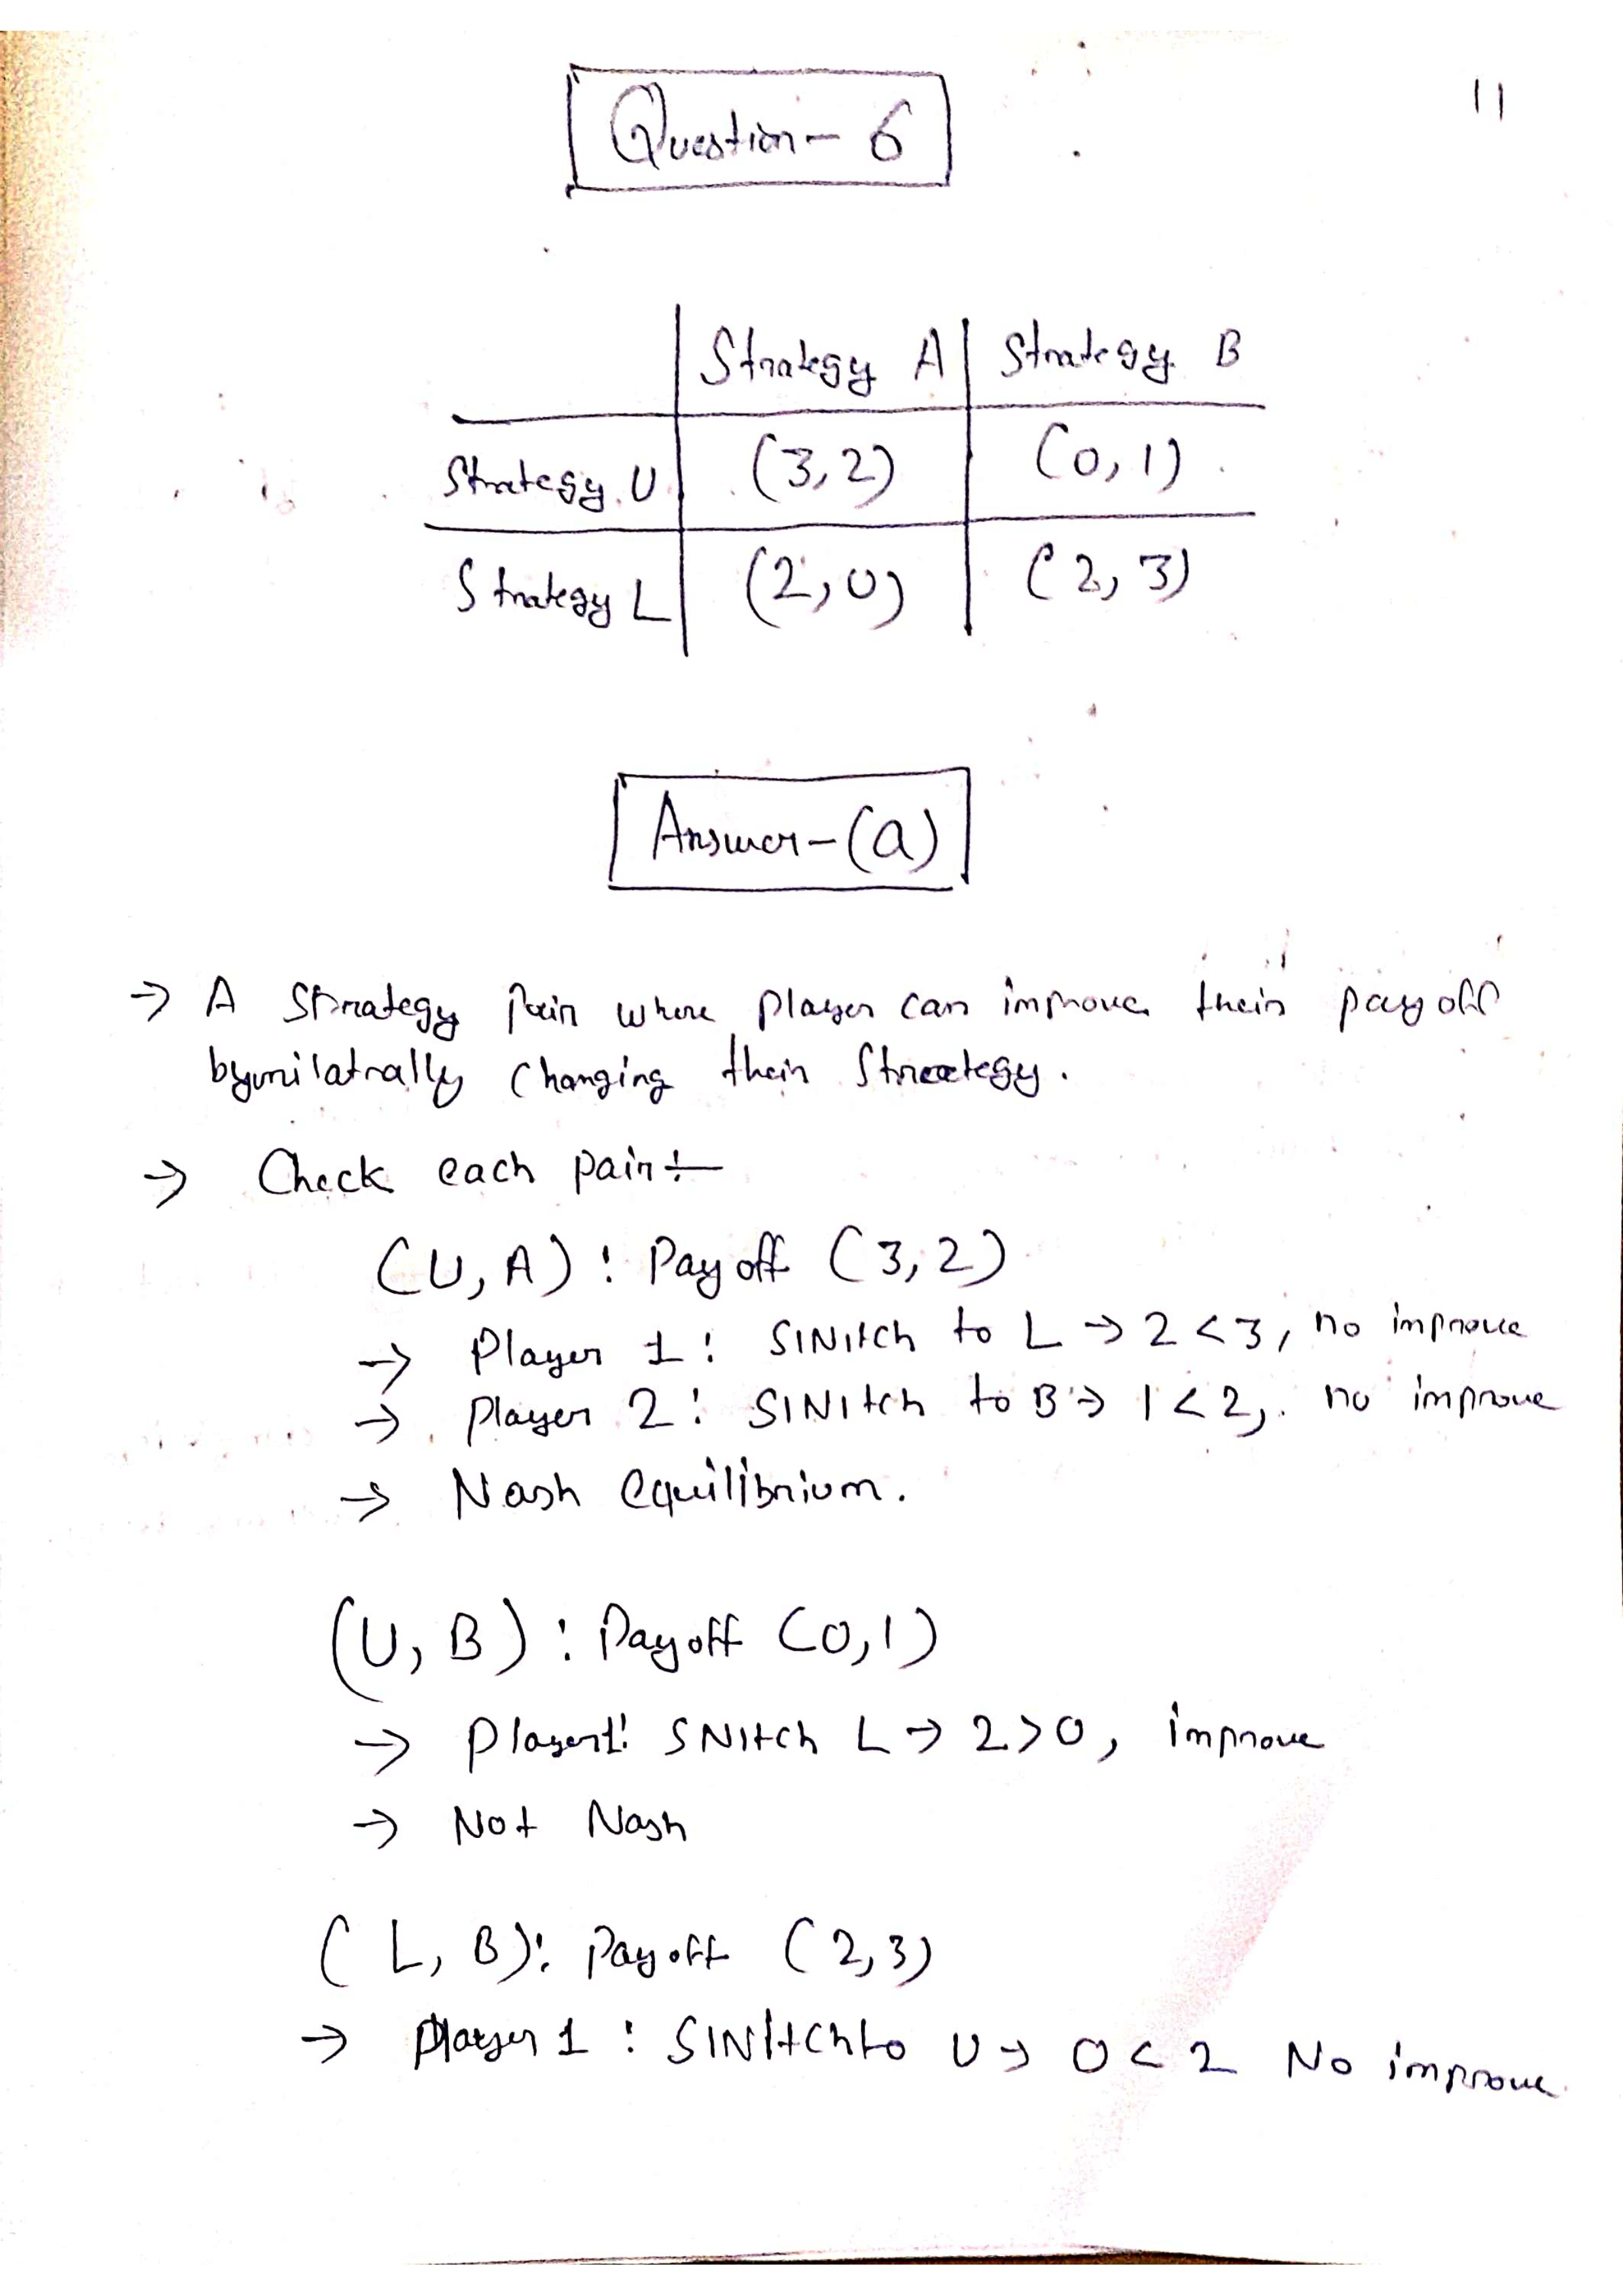 11
Question - 6
Strategy A Strategy B
Strategy U (3,2) (0,1)
Strategy L (2,0) (2,3)
Answer - (a)
→ A Strategy Pair where player can improve their payoff
byunilatrally changing their Strategy.
→ Check each pair:-
(U, A) : Pay off (3,2)
→ Player 1 : SWitch to L → 2 < 3, no improve
→ player 2 : SWitch to B → 1 < 2, no improve
→ Nash equilibrium.
(U, B) : Payoff (0,1)
→ Player1: SWitch L → 2 > 0, improve
→ Not Nash
( L, B): Payoff (2,3)
→ player 1 : SWitch to U → 0 < 2 No improve.